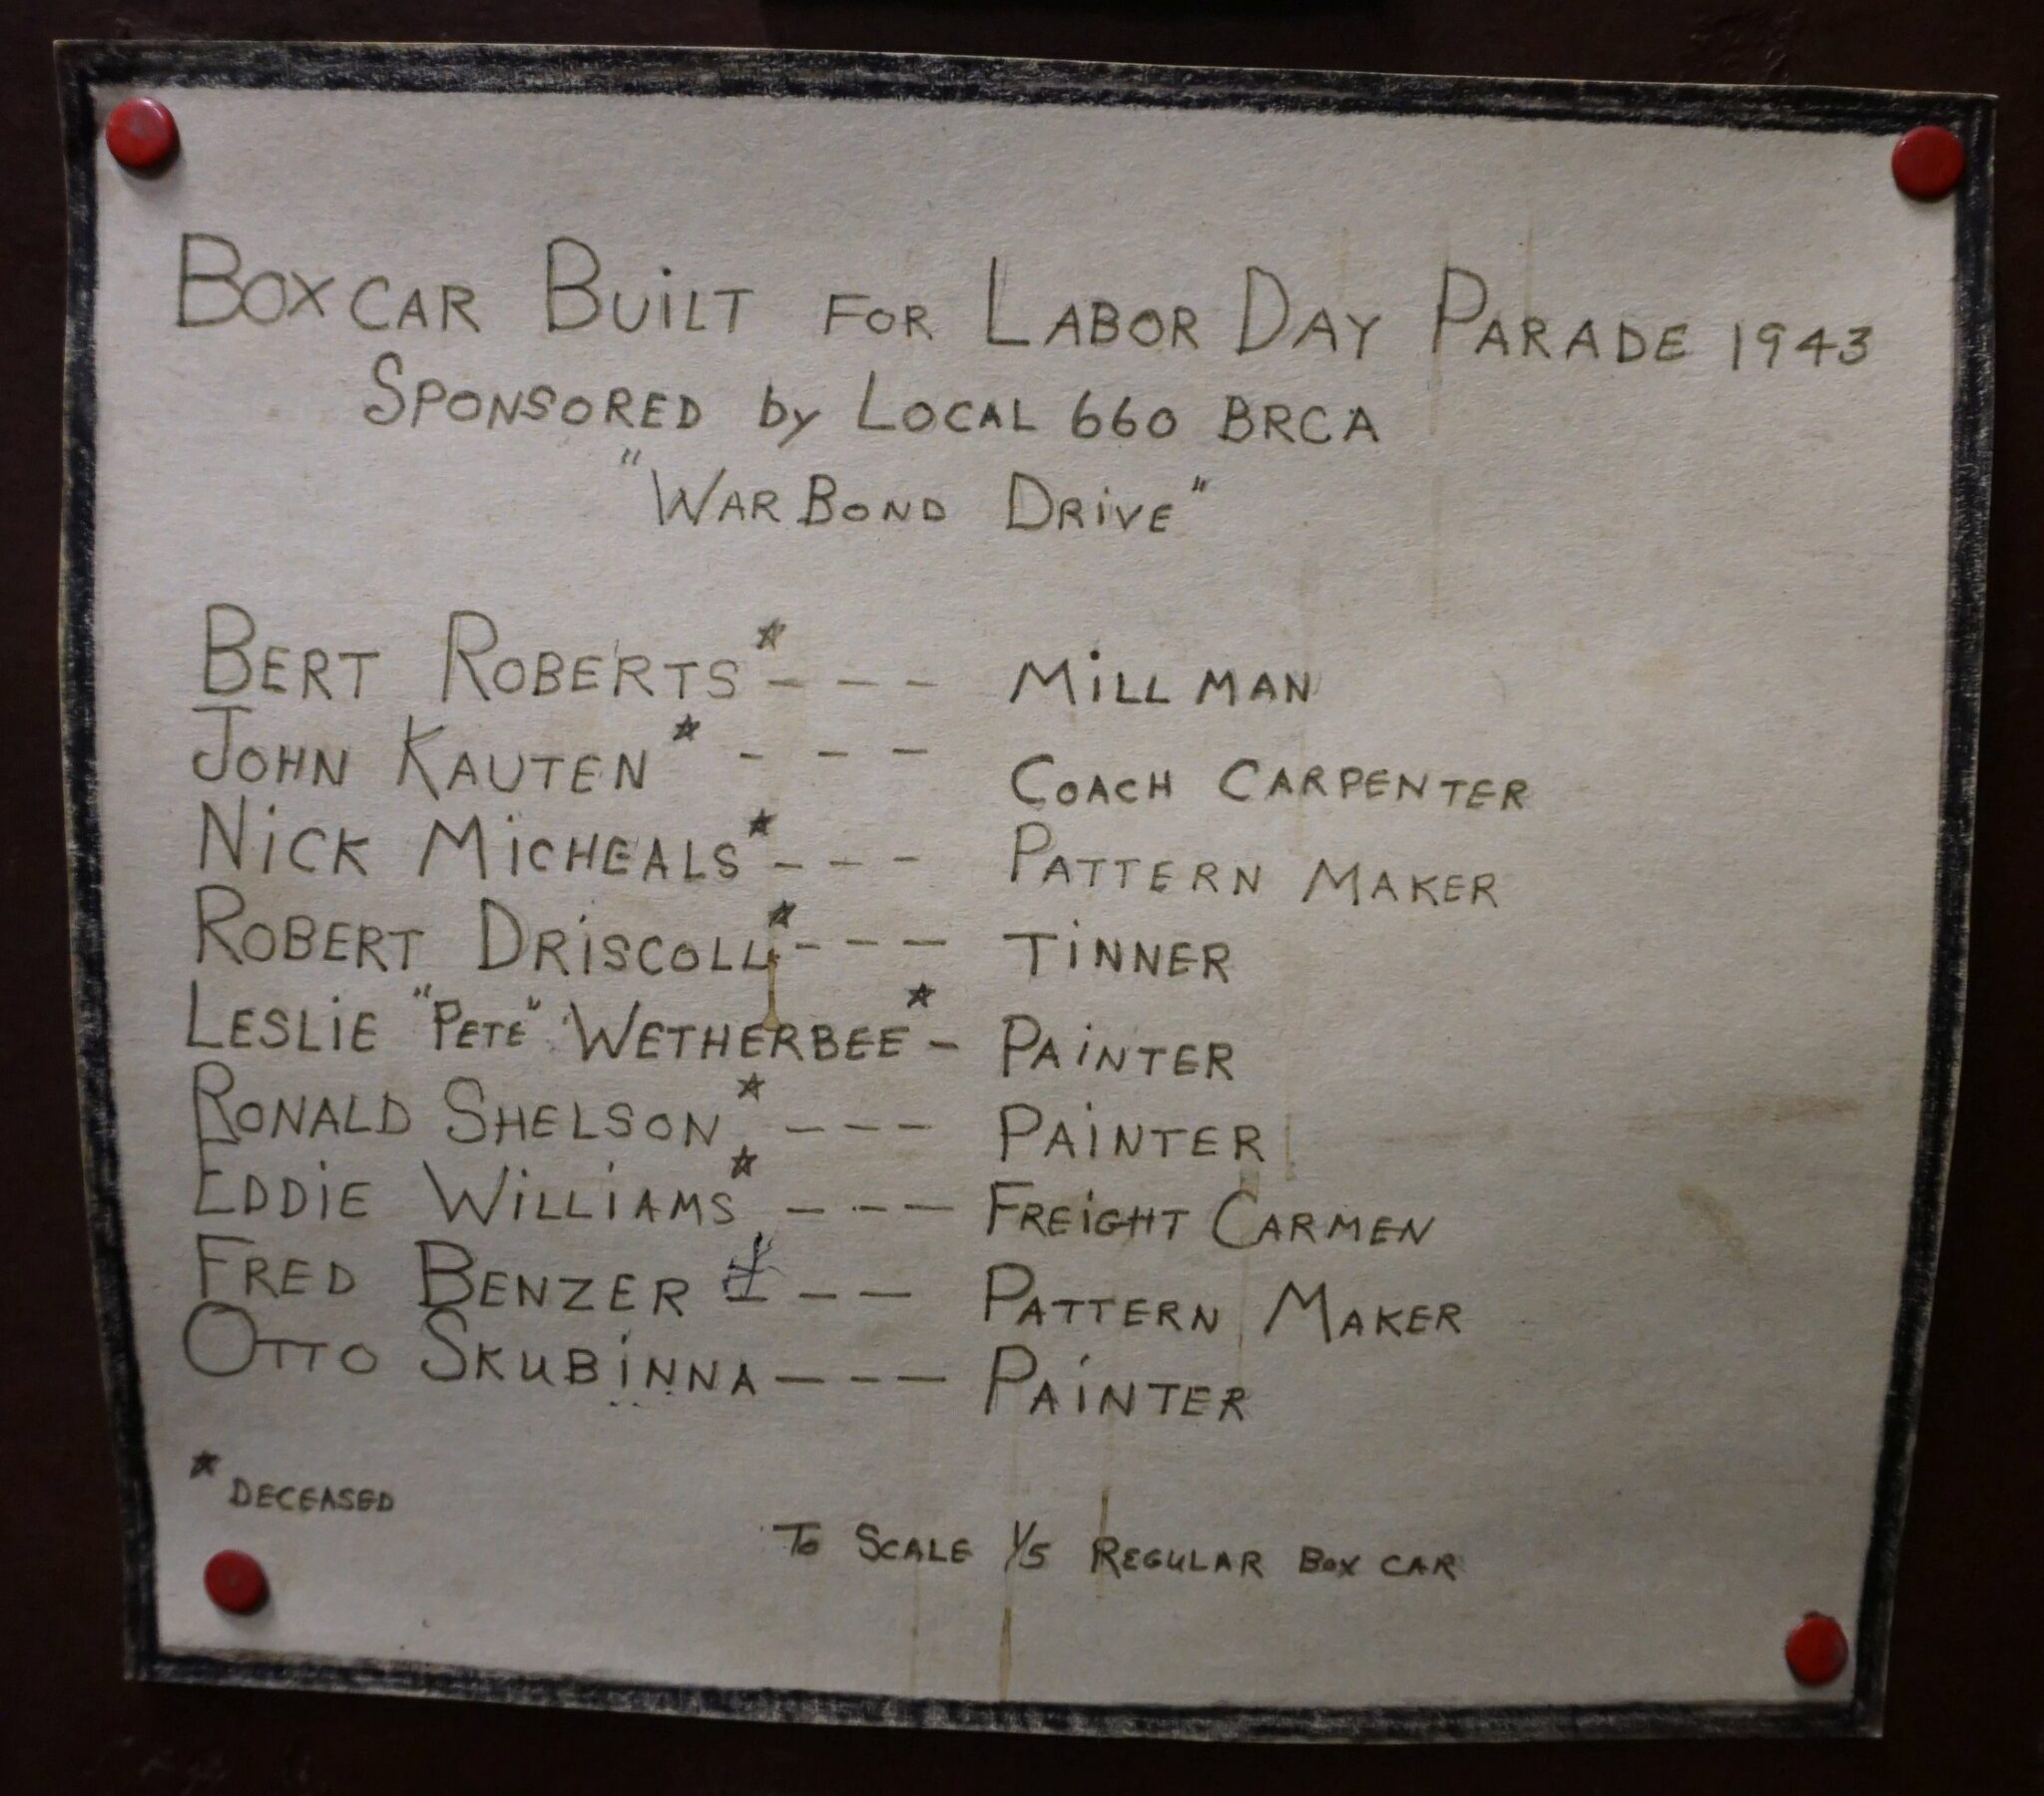 BOXCAR BUiLT FOR LABOR DAY PARADE 1943
SPONSORED by LOCAL 660 BRCA
"WAR BOND DRiVE"
BERT ROBERTS* --- MiLL MAN
JOHN KAUTEN* --- COACH CARPENTER
NiCK MiCHEALS* --- PATTERN MAKER
ROBERT DRiSCOLL* --- TiNNER
LESLiE "PETE" WETHERBEE* - PAiNTER
RONALD SHELSON* --- PAiNTER
EDDiE WiLLiAMS* --- FREiGHT CARMEN
FRED BENZER * -- PATTERN MAKER
OTTO SKUBiNNA --- PAiNTER
* DECEASED
To SCALE 1/5 REGULAR BOX CAR